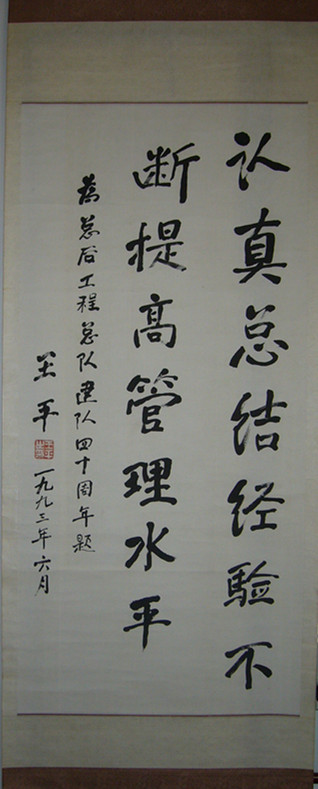 认真总结经验不
断提高管理水平
为总后工程总队建队四十周年题
王平
一九九三年六月